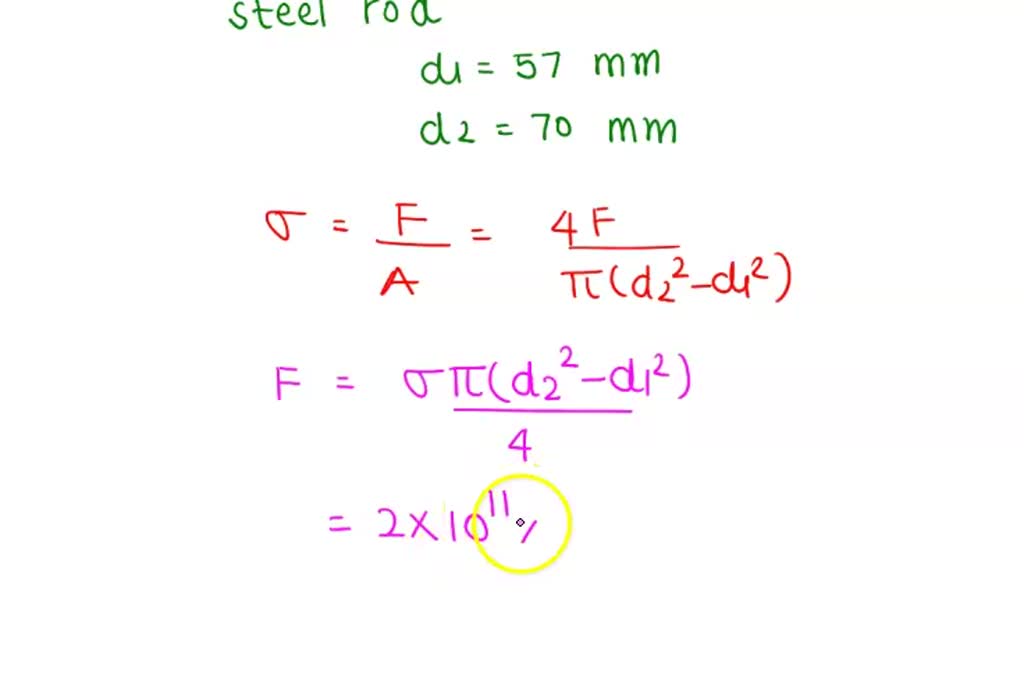 steel rod
d1 = 57 mm
d2 = 70 mm
σ = F/A = 4F/π(d2²-d1²)
F = σπ(d2²-d1²)/4
= 2×10¹¹